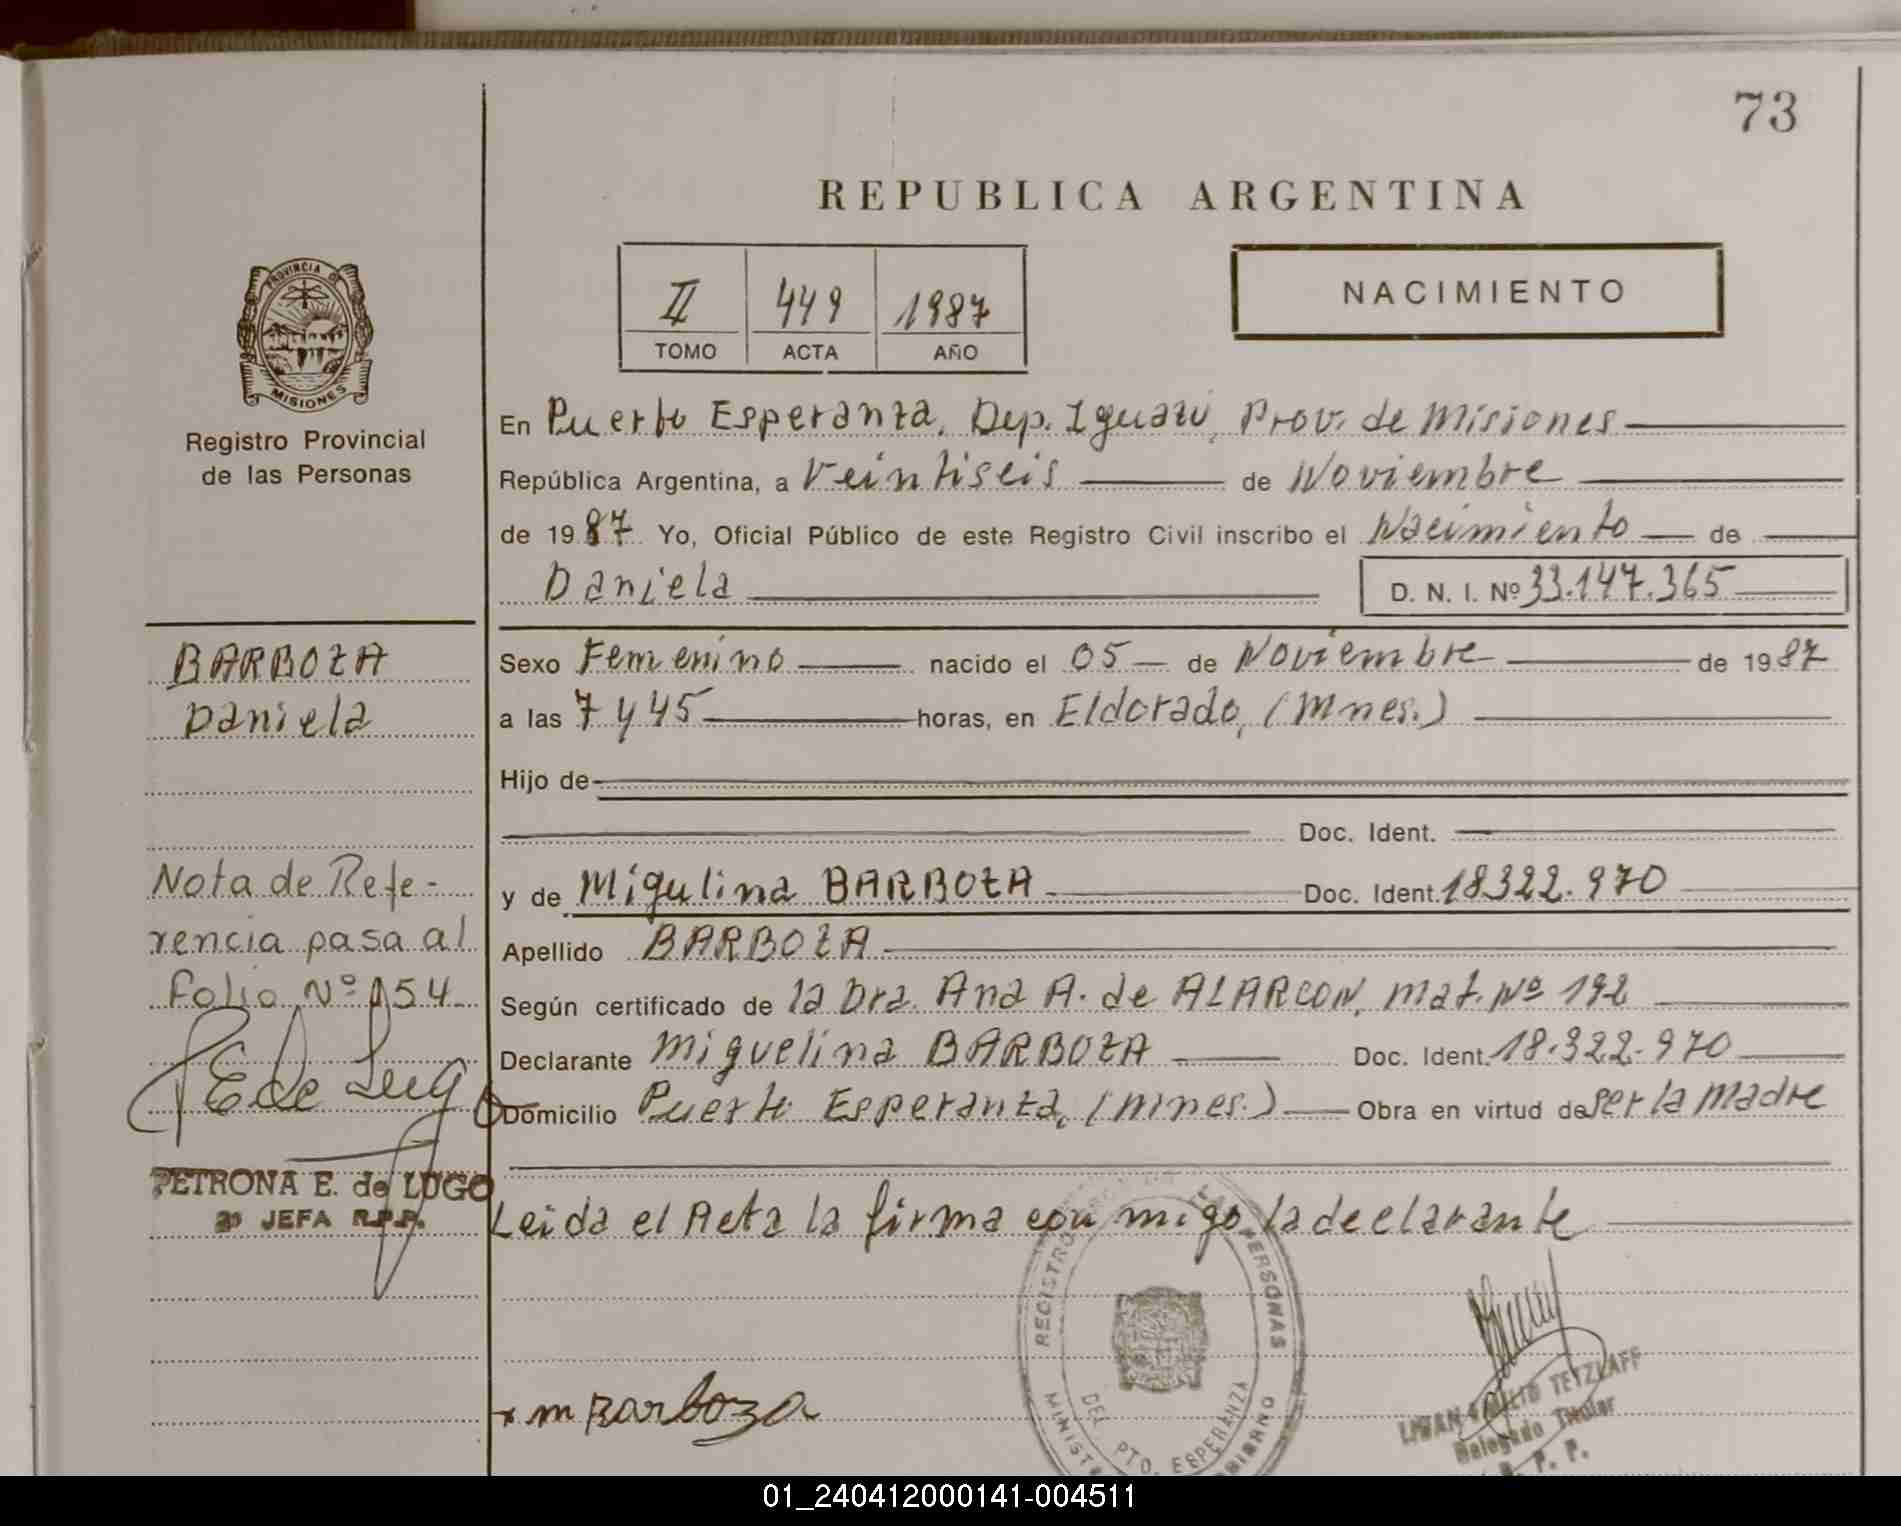 73
REPUBLICA ARGENTINA
II 449 1987
TOMO ACTA AÑO
NACIMIENTO
PROVINCIA DE
MISIONES
Registro Provincial
de las Personas
En Puerto Esperanza, Dep. Iguazú, Prov. de Misiones
República Argentina, a Veintiseis de Noviembre
de 1987 Yo, Oficial Público de este Registro Civil inscribo el Nacimiento de
Daniela D. N. I. Nº 33.147.365
BARBOZA
Daniela
Sexo Femenino nacido el 05 de Noviembre de 1987
a las 7 y 45 horas, en Eldorado, (Mnes.)
Hijo de
Doc. Ident.
y de Migulina BARBOZA Doc. Ident. 18322.970
Apellido BARBOZA
Según certificado de la Dra. Ana A. de ALARCON, Mat. Nº 192
Declarante Miguelina BARBOZA Doc. Ident. 18.322.970
Domicilio Puerto Esperanza, (Mnes.) Obra en virtud de ser la Madre
Nota de Refe-
rencia pasa al
folio Nº 154
PE de Lugo
PETRONA E. de LUGO
2º JEFA R.P.P.
Leida el Acta la firma con migo la declarante
REGISTRO PERSONAS
DEL PTO. ESPERANZA
x m Barboza
TETZLAFF
Delegado Titular
R. P. P.
01_240412000141-004511